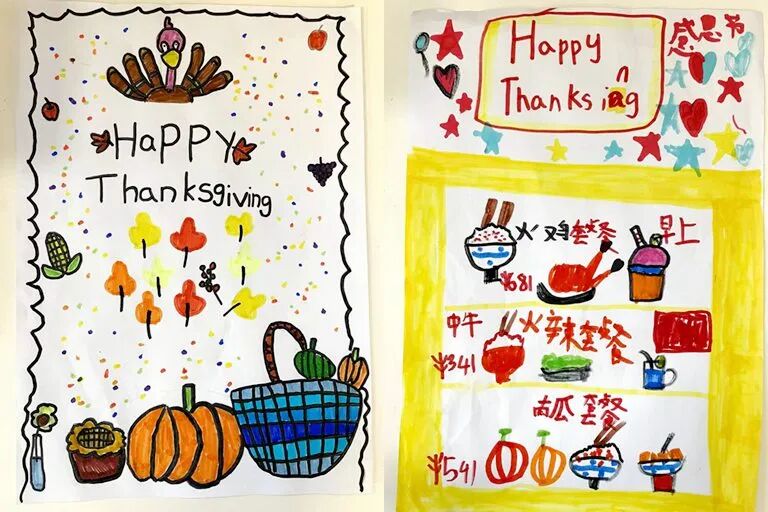 HaPPY
Thanksgiving
Happy
Thanksiang
感恩节
火鸡套餐
早上
¥681
中午
火辣套餐
¥341
南瓜套餐
¥541